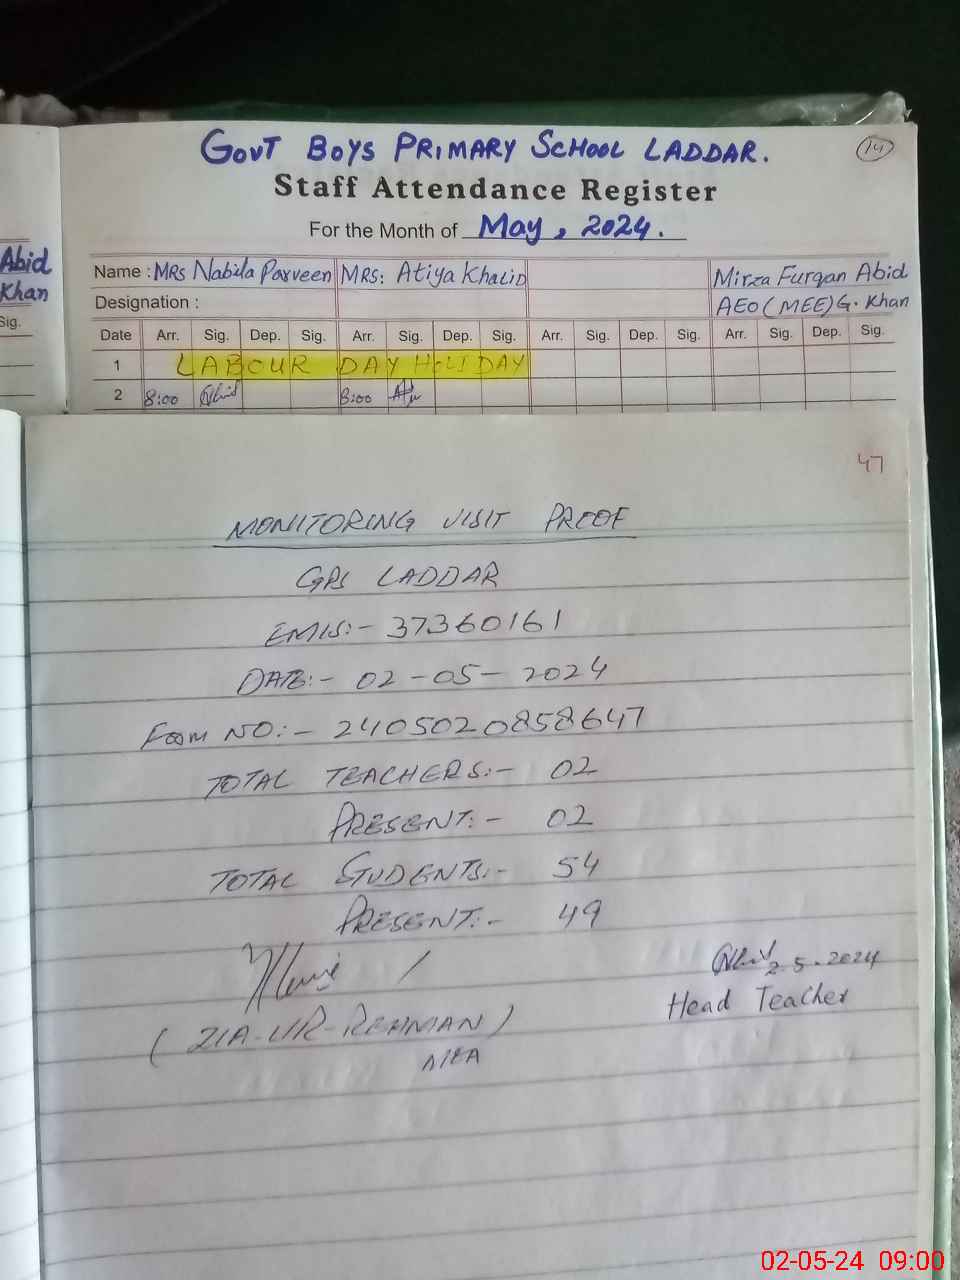 GOVT BOYS PRIMARY SCHOOL LADDAR.
14
Staff Attendance Register
For the Month of May, 2024.
Abid
Khan
Sig.
Name : MRS Nabila Parveen MRS: Atiya Khalid Mirza Furqan Abid
Designation : AEO (MEE) G. Khan
Date Arr. Sig. Dep. Sig. Arr. Sig. Dep. Sig. Arr. Sig. Dep. Sig. Arr. Sig. Dep. Sig.
1 LABOUR DAY HOLIDAY
2 8:00 8:00
47
MONITORING VISIT PROOF
GPS LADDAR
EMIS:- 37360161
DATE:- 02-05-2024
Form NO:- 2405020858647
TOTAL TEACHERS:- 02
PRESENT:- 02
TOTAL STUDENTS:- 54
PRESENT:- 49
2.5.2024
Head Teacher
(ZIA-UR-REHMAN)
MEA
02-05-24 09:00